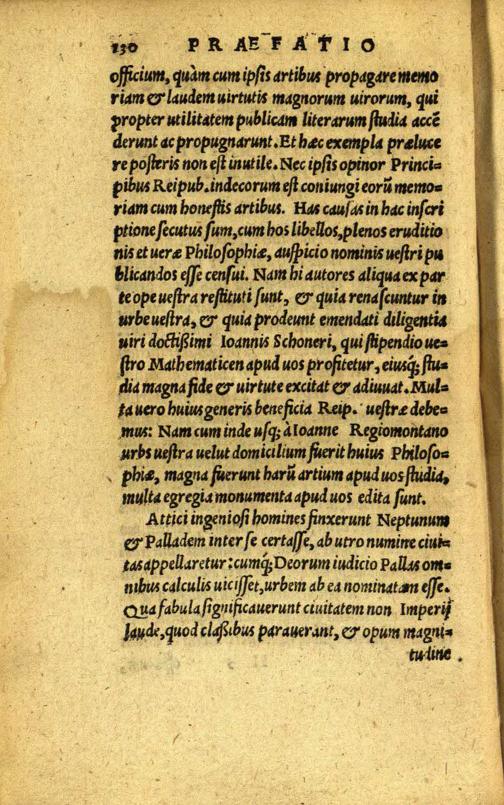 130 PRÆFATIO
officium, quàm cum ipsis artibus propagare memo
riam & laudem uirtutis magnorum uirorum, qui
propter utilitatem publicam literarum studia accẽ
derunt ac propugnarunt. Et hæc exempla præluce
re posteris non est inutile. Nec ipsis opinor Princi=
pibus Reipub. indecorum est coniungi eorũ memo=
riam cum honestis artibus. Has causas in hac inscri
ptione secutus sum, cum hos libellos, plenos eruditio
nis et ueræ Philosophiæ, auspicio nominis uestri pu
blicandos esse censui. Nam hi autores aliqua ex par
te ope uestra restituti sunt, & quia renascuntur in
urbe uestra, & quia prodeunt emendati diligentia
uiri doctißimi Ioannis Schoneri, qui stipendio ue=
stro Mathematicen apud uos profitetur, eiusq; stu=
dia magna fide & uirtute excitat & adiuuat. Mul=
ta uero huius generis beneficia Reip. uestræ debe=
mus: Nam cum inde usq; à Ioanne Regiomontano
urbs uestra uelut domicilium fuerit huius Philoso=
phiæ, magna fuerunt harũ artium apud uos studia,
multa egregia monumenta apud uos edita sunt.
Attici ingeniosi homines finxerunt Neptunum
& Palladem inter se certasse, ab utro numine ciui=
tas appellaretur: cumq; Deorum iudicio Pallas om=
nibus calculis uicisset, urbem ab ea nominatam esse.
Qua fabula significauerunt ciuitatem non Imperij
laude, quod claßibus parauerant, & opum magni=
tudine